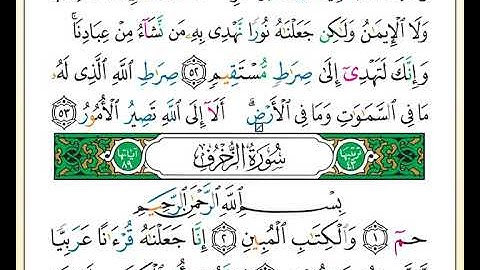 وَلَا ٱلْإِيمَـٰنُ وَلَـٰكِن جَعَلْنَـٰهُ نُورًا نَّهْدِى بِهِۦ مَن نَّشَآءُ مِنْ عِبَادِنَا ۚ
وَإِنَّكَ لَتَهْدِىٓ إِلَىٰ صِرَٰطٍ مُّسْتَقِيمٍ ٥٢ صِرَٰطِ ٱللَّهِ ٱلَّذِى لَهُۥ
مَا فِى ٱلسَّمَـٰوَٰتِ وَمَا فِى ٱلْأَرْضِ ۗ أَلَآ إِلَى ٱللَّهِ تَصِيرُ ٱلْأُمُورُ ٥٣
ترتيبها ٤٣ سُورَةُ ٱلزُّخْرُفِ آياتها ٨٩
بِسْمِ ٱللَّهِ ٱلرَّحْمَـٰنِ ٱلرَّحِيمِ
حمٓ ١ وَٱلْكِتَـٰبِ ٱلْمُبِينِ ٢ إِنَّا جَعَلْنَـٰهُ قُرْءَٰنًا عَرَبِيًّا